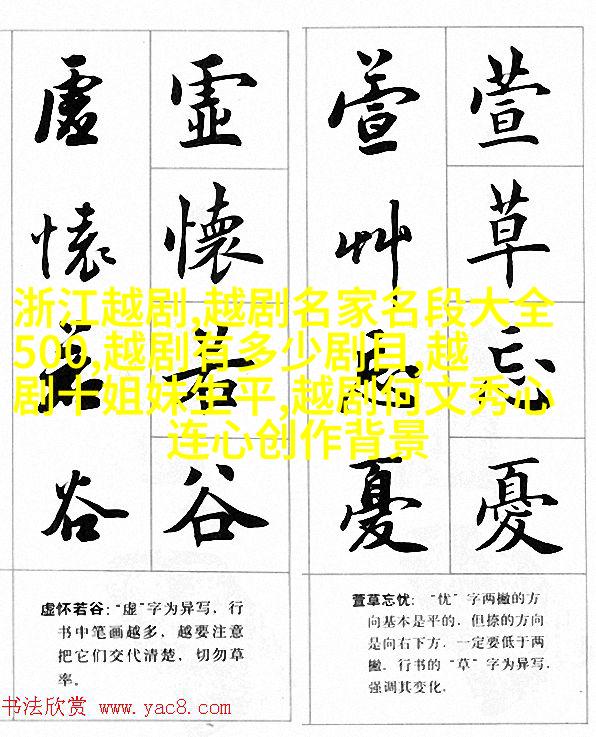 虚懷若谷
虚懷若谷
萱艸忘憂
萱草忘憂
浙江越剧,越剧名家名段大全
500,越剧有多少剧目,越
剧十姐妹生平,越剧何文秀心
连心创作背景
虚怀若谷：“虚”字为异写，行
书中笔画越多，越要注意
把它们交代清楚，切勿草
率。
萱草忘忧：“忧”字两撇的方
向基本是平的，但捺的方向
是向右下方，一定要低于两
撇。行书的“草”字为异写，
强调其变化。
书法欣赏 www.yac8.com